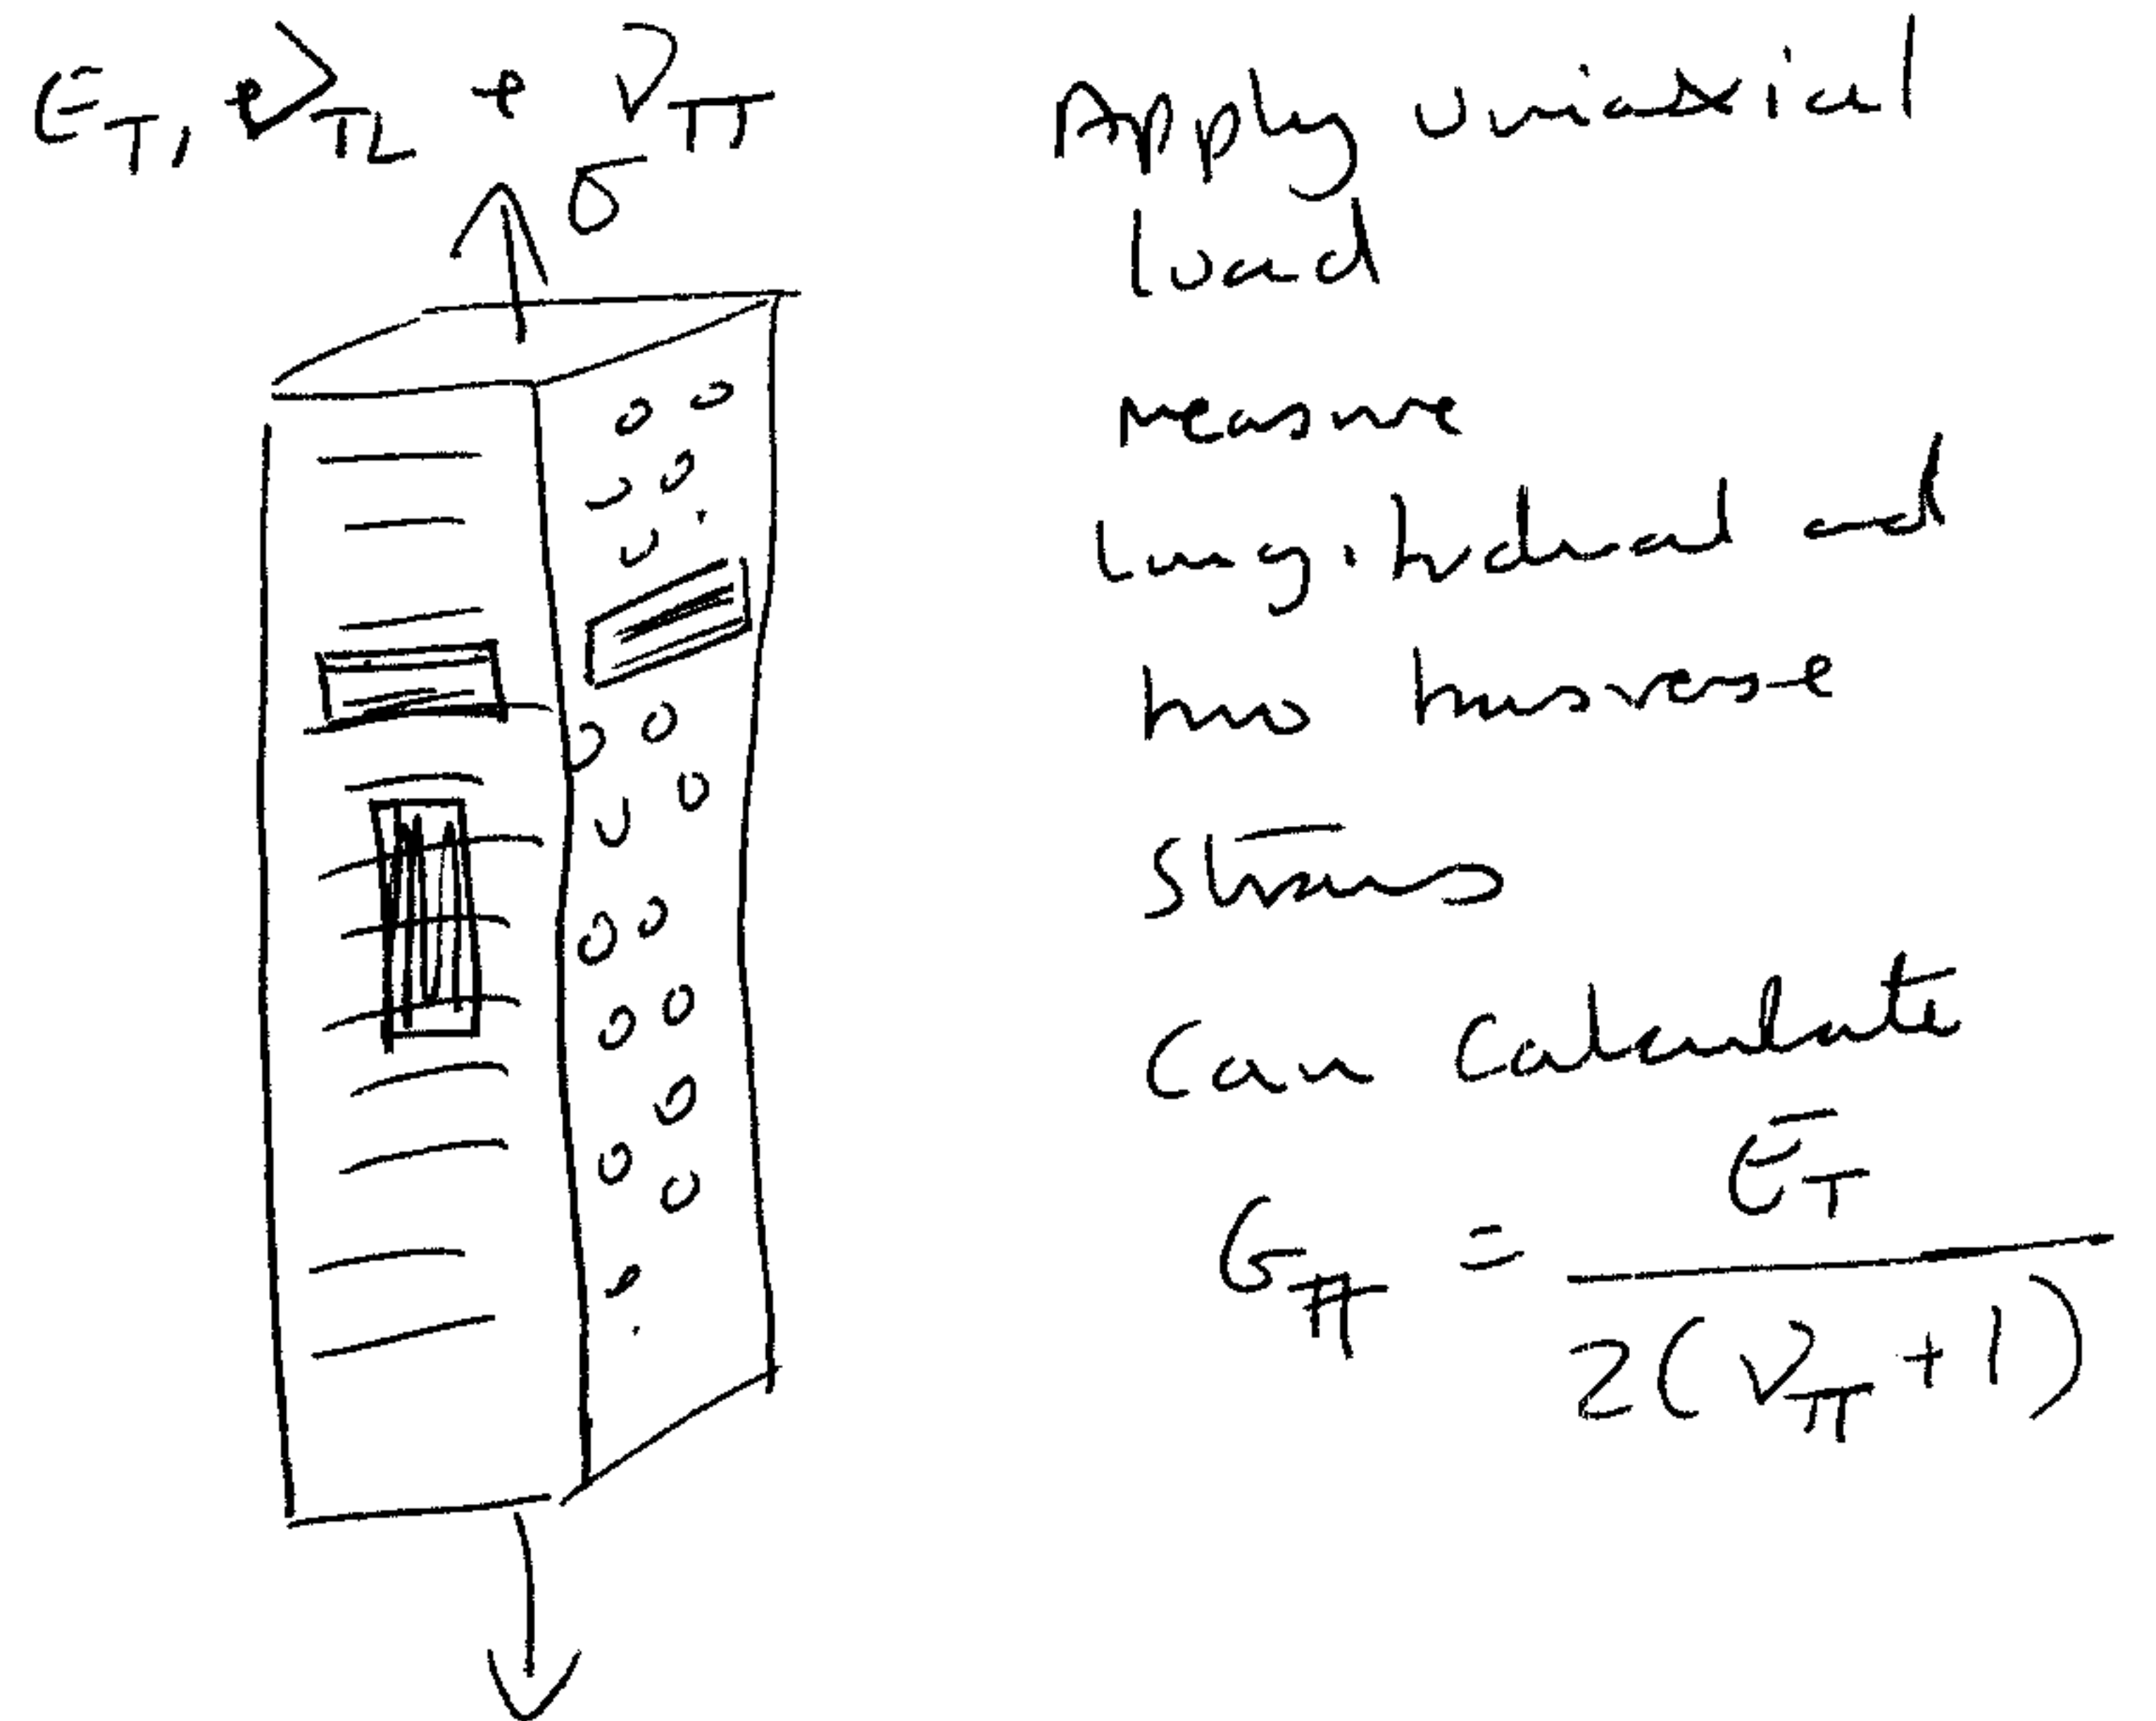 E_T, ν_TL + ν_TT
σ
Apply uniaxial
load
measure
longitudinal and
two transverse
strains
Can calculate
G_TT = E_T / 2(ν_TT + 1)